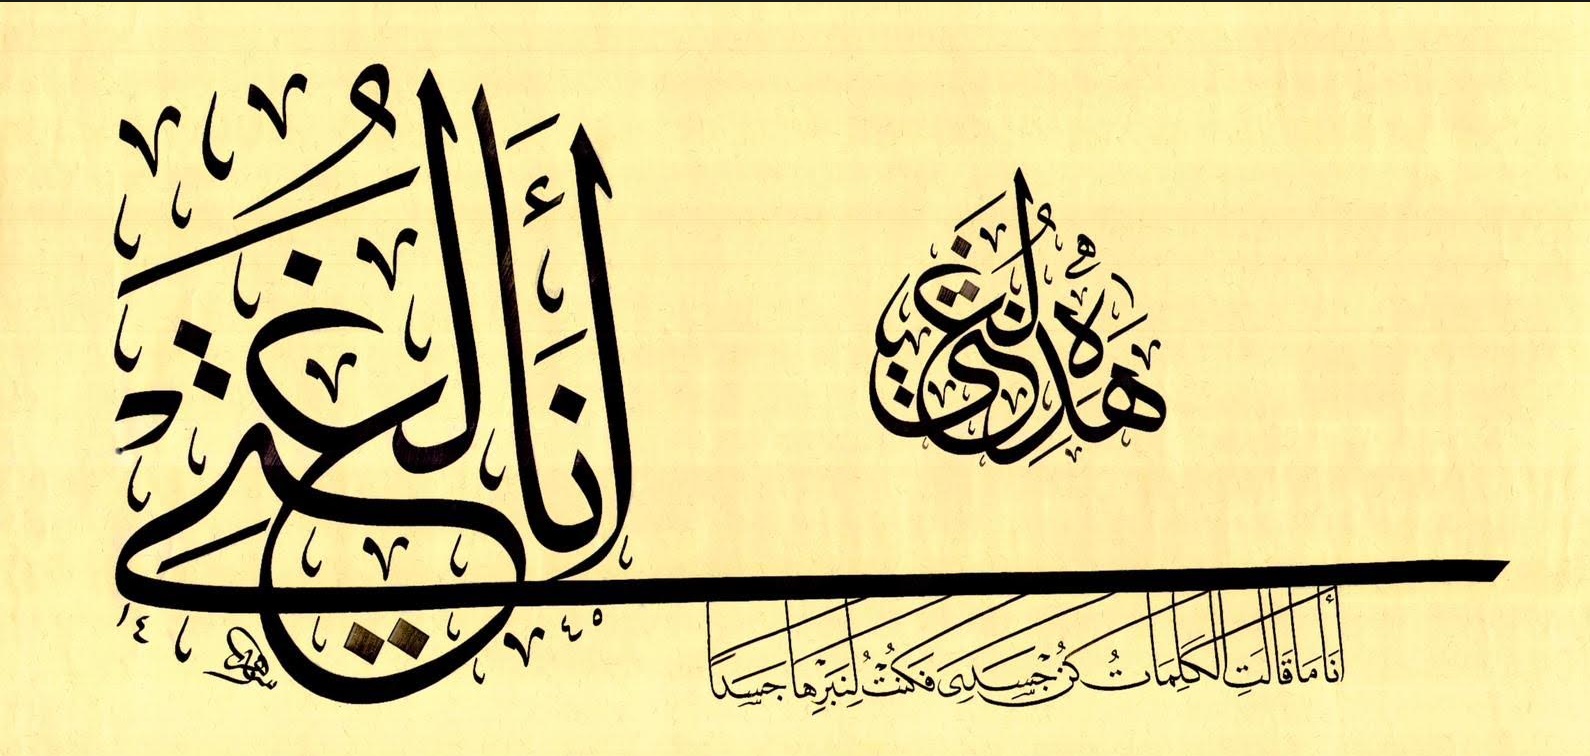 هَذِهِ لُغَتي
أَنَا لُغَتي
أَنَا مَا قَالَتِ الكَلِمَاتُ كُنْ جَسَدِي فَكُنْتُ لِنَبْرِهَا جَسَدًا
١٤٤٥